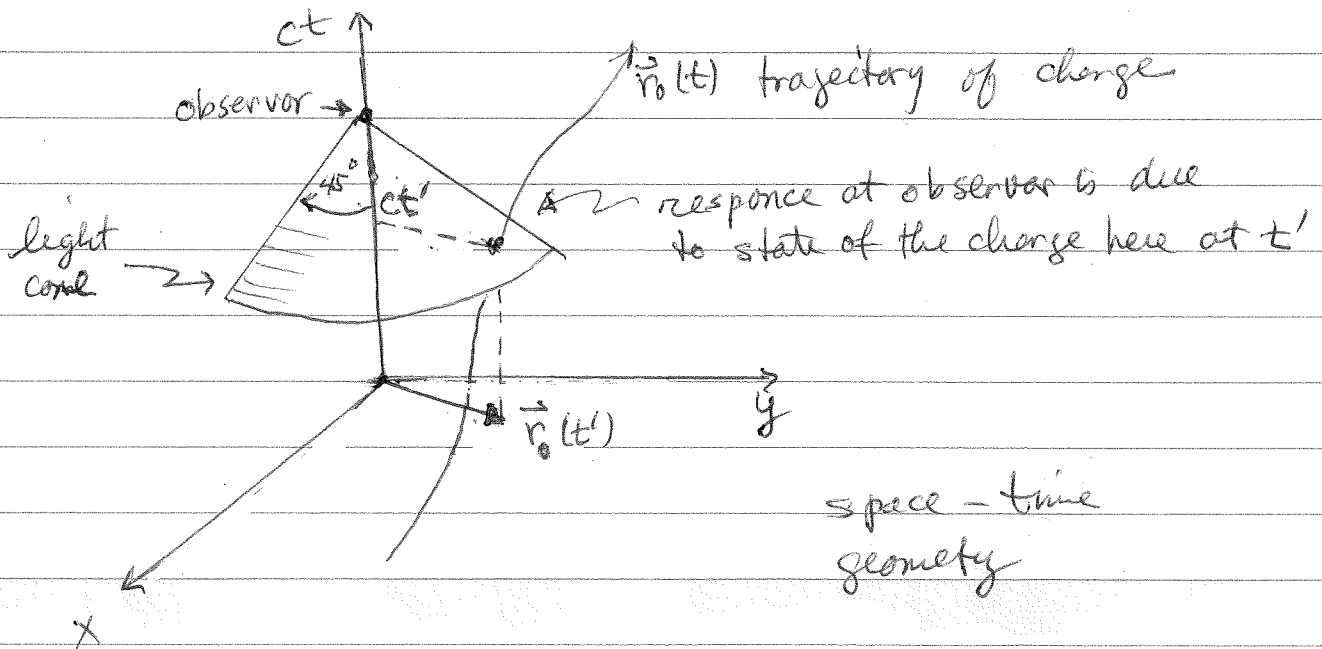 ct
observor
r₀(t) trajectory of charge
45°
ct'
responce at observor is due
to state of the charge here at t'
light
cone
y
r₀(t')
space - time
geomety
x